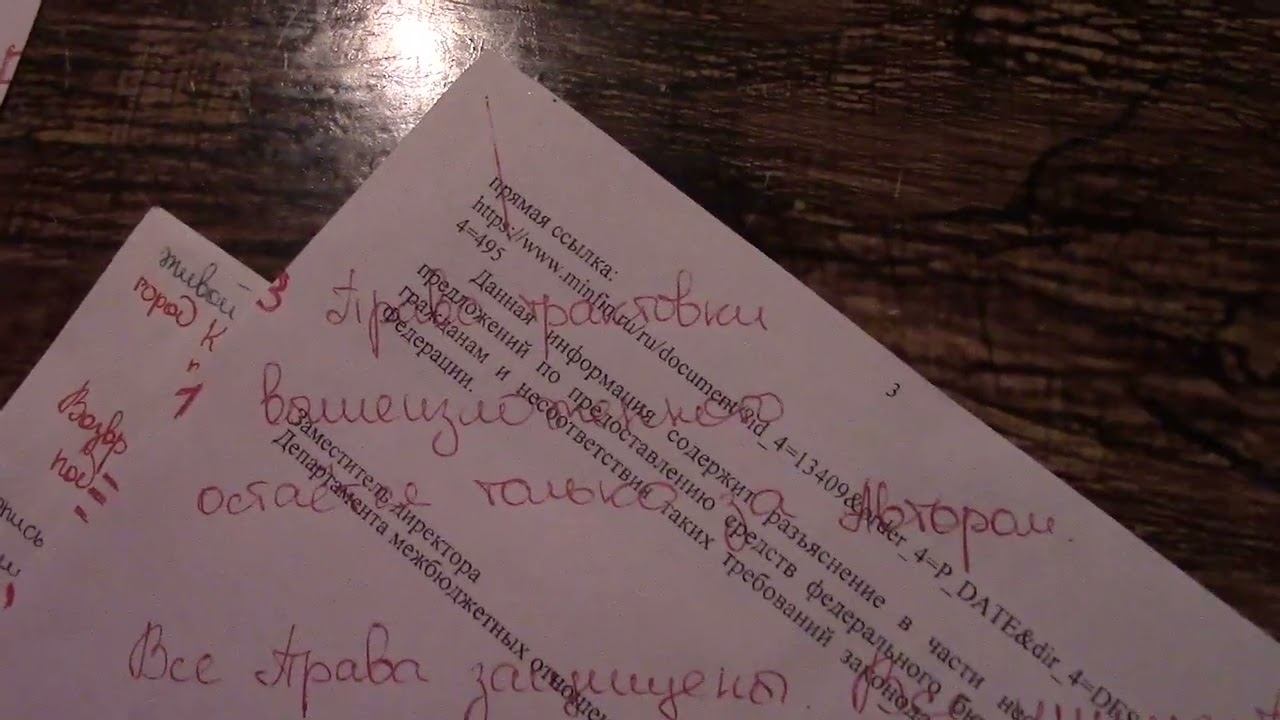 3
прямая ссылка:
https://www.minfin.ru/ru/document/?id_4=13409&order_4=P_DATE&dir_4=DES
4=495
Данная информация содержит разъяснение в части
предложений по предоставлению средств федерального
гражданам и несоответствия таких требований
Федерации.
Заместитель директора
Департамента межбюджетных
3 Право трактовки
вышеизложенного
остаётся только за Автором.
Все Права защищены.
живой
город К
п
1
Возвр
под